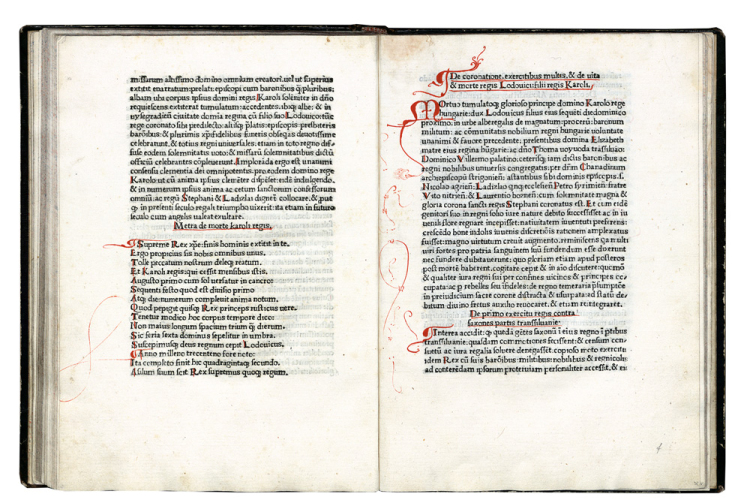 missarum altissimo domino omnium creatori. vel ut superius
extitit enarratum: prelati: episcopi cum baronibus q̃ pluribus:
albam ubi corpus ipsius domini regis Karoli solẽniter in dño
requiescens extiterat tumulatum: accedentes. ibiq̃ albe: &
uysegradien̄ ciuitate domia regina cũ filio suo Lodouico tũc
rege coronato sibi predilecto: aliisq̃ p̃latis: episcopis: prothonotariis
baronibus: & plurimis xp̃i fidelibus
celebrarunt. & totius regni uniuersales. etiam in toto regno
fuse eodem solemnitates uoto: & missarũ solemnitatibus dictũ
officiũ celebrantes cõpleuerunt. Implorãda ergo est unanimi
consensu clementia dei omnipotentis. pro eodem domino rege
Karolo ut cũ anima ipsius clemẽter dispẽset: eidẽ indulgendo.
& in numerum ipsius anima ac cetum sanctorum confessorum
omniũ: ac regũ Stephani & Ladizlai dignet̃ collocare: & sicut
q̃ in presenti seculo regali triumpho uixerit: ita etiam in futuro
seculo cum angelis ualeat exultare.
Metra de morte karoli regis.
Supreme Rex xp̃e: finis hominis extitit in te.
Ergo propicius sis nobis omnibus unus.
Tolle peccatum nostrum deleq̃ reatum.
Et Karoli regis: qui cessit mensibus istis.
Augusto primo cum sol uersatur in cancro:
Sequenti festo quod est diuisio primo
Atq̃ die: numerum compleuit anima notum.
Quod pepigit quisq̃ Rex princeps rusticus uere.
Tenetur modico hoc corpus tempore dico:
Non maius longum spacium trium q̃ dierum.
Sic feria sexta dominus sepelitur in umbra.
Suscepimusq̃ deus regnum cepit Lodouicus.
Anno milleno trecenteno fore noto:
Ita completo sinit hic quadragintaq̃ secundo.
Asilum suum seit Rex supremus quoq̃ regum.
De coronatione. exercitibus multis. & de uita
& morte regis Lodouici filii regis Karoli.
MOrtuo tumulatoq̃ glorioso principe domino Karolo rege
hungarie: dux Lodouicus filius eius sequẽti die dominico
proximo. in urbe alberegalis de magnatum: procerũ: baronum
militum: ac cõmunitatis nobilium regni hungarie uoluntate
unanimi & fauore precedente: presentibus domina Elizabeth
matre eius regina hũgarie: ac dño Thoma uoyuoda trãssiluão:
Dominico Villermo palatino. ceterisq̃ iam dictis baronibus ac
regni nobilibus uniuersis congregatis: per dñm Chanadinum
archiepiscopũ strigonieñ: astantibus sibi dominis episcopis. s.
Nicolao agrieñ: Ladizlao q̃nq̃ecclesieñ Petro syrimieñ: fratre
Vito nitrieñ: & Laurentio bosneñ: cum solemnitate magna &
gloria corona sancti regis Stephani coronatus est. Et cum eidẽ
genitori suo in regni solio iure nature debito successisset ac in iu
uenili flore regnare inceptisset: natiuitatem iuuentuti preferens:
crescẽdo bone indolis iuuenis discretiõis rationem amplexatus
fuisset: magno uirtutum creuit augmento. reminiscens q̃a multi
uiri fortes pro patria sanguinem suũ fundendum esse duxerunt
nec fundere dubitauerunt: quo gloriam etiam apud posteros
post mortẽ haberent. cogitare cepit & in aĩo discutere: quõmõ
& qualiter iura regni sui per confines uicinos: & principes oc-
cupata: ac p̃ rebelles seu infideles: de regno temeraria p̃sumptõe
in preiudicium sacre corone distracta & usurpata: ad statũ de-
bitum diuino fretus auxilio reuocaret. & etiam reintegraret.
De primo exercitu regis contra
saxones partis transsiluanie.
INterea accedit: q̃ quedã gẽtes saxonũ ĩ eius regno ĩ p̃tibus
transsiluanie: quasdam commotiones fecissent: & censum con-
suetũ ac iura regalia soluere denegasset. copioso moto exercitu
idem Rex cũ suis barõibus: militibus nobilibus & regnicolis
ad conterẽdam ipsorum proteruiam personaliter accessit. & eo
4